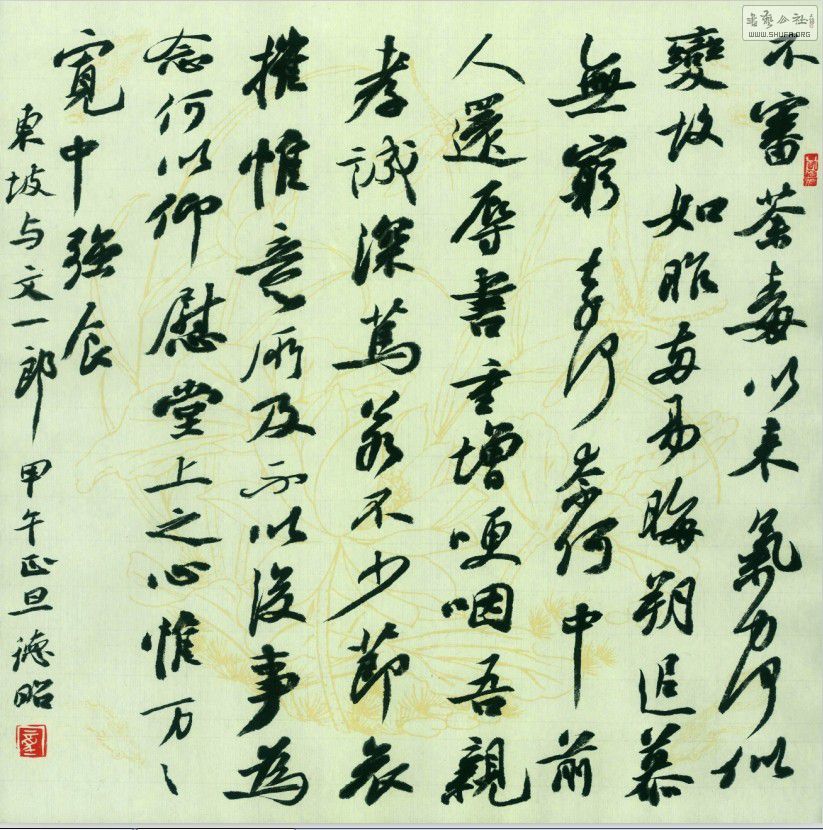 不審荼毒以来氣力何似
變故如昨两易晦朔追慕
無窮奈何奈何中前
人還辱書重增哽咽吾親
孝誠深篤若不少節哀
摧惟意所及不以後事為
念何以仰慰堂上之心惟万〻
寬中強食
東坡与文一郎 甲午正旦 德昭
書藝公社
WWW.SHUFA.ORG